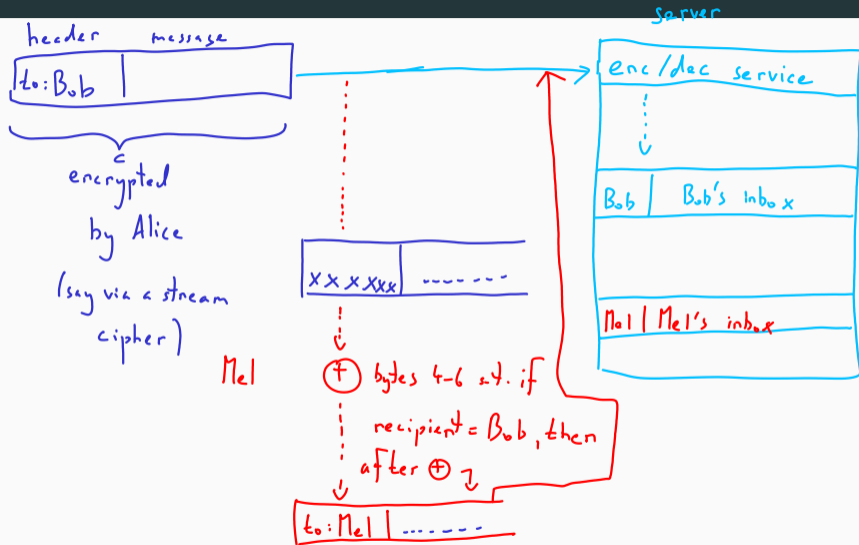 server
header message
to:Bob
enc/dec service
encrypted
by Alice
(say via a stream
cipher)
Bob Bob's inbox
xxxxxx -------
Mel | Mel's inbox
Mel
⊕ bytes 4-6 s.t. if
recipient = Bob, then
after ⊕
to:Mel ------